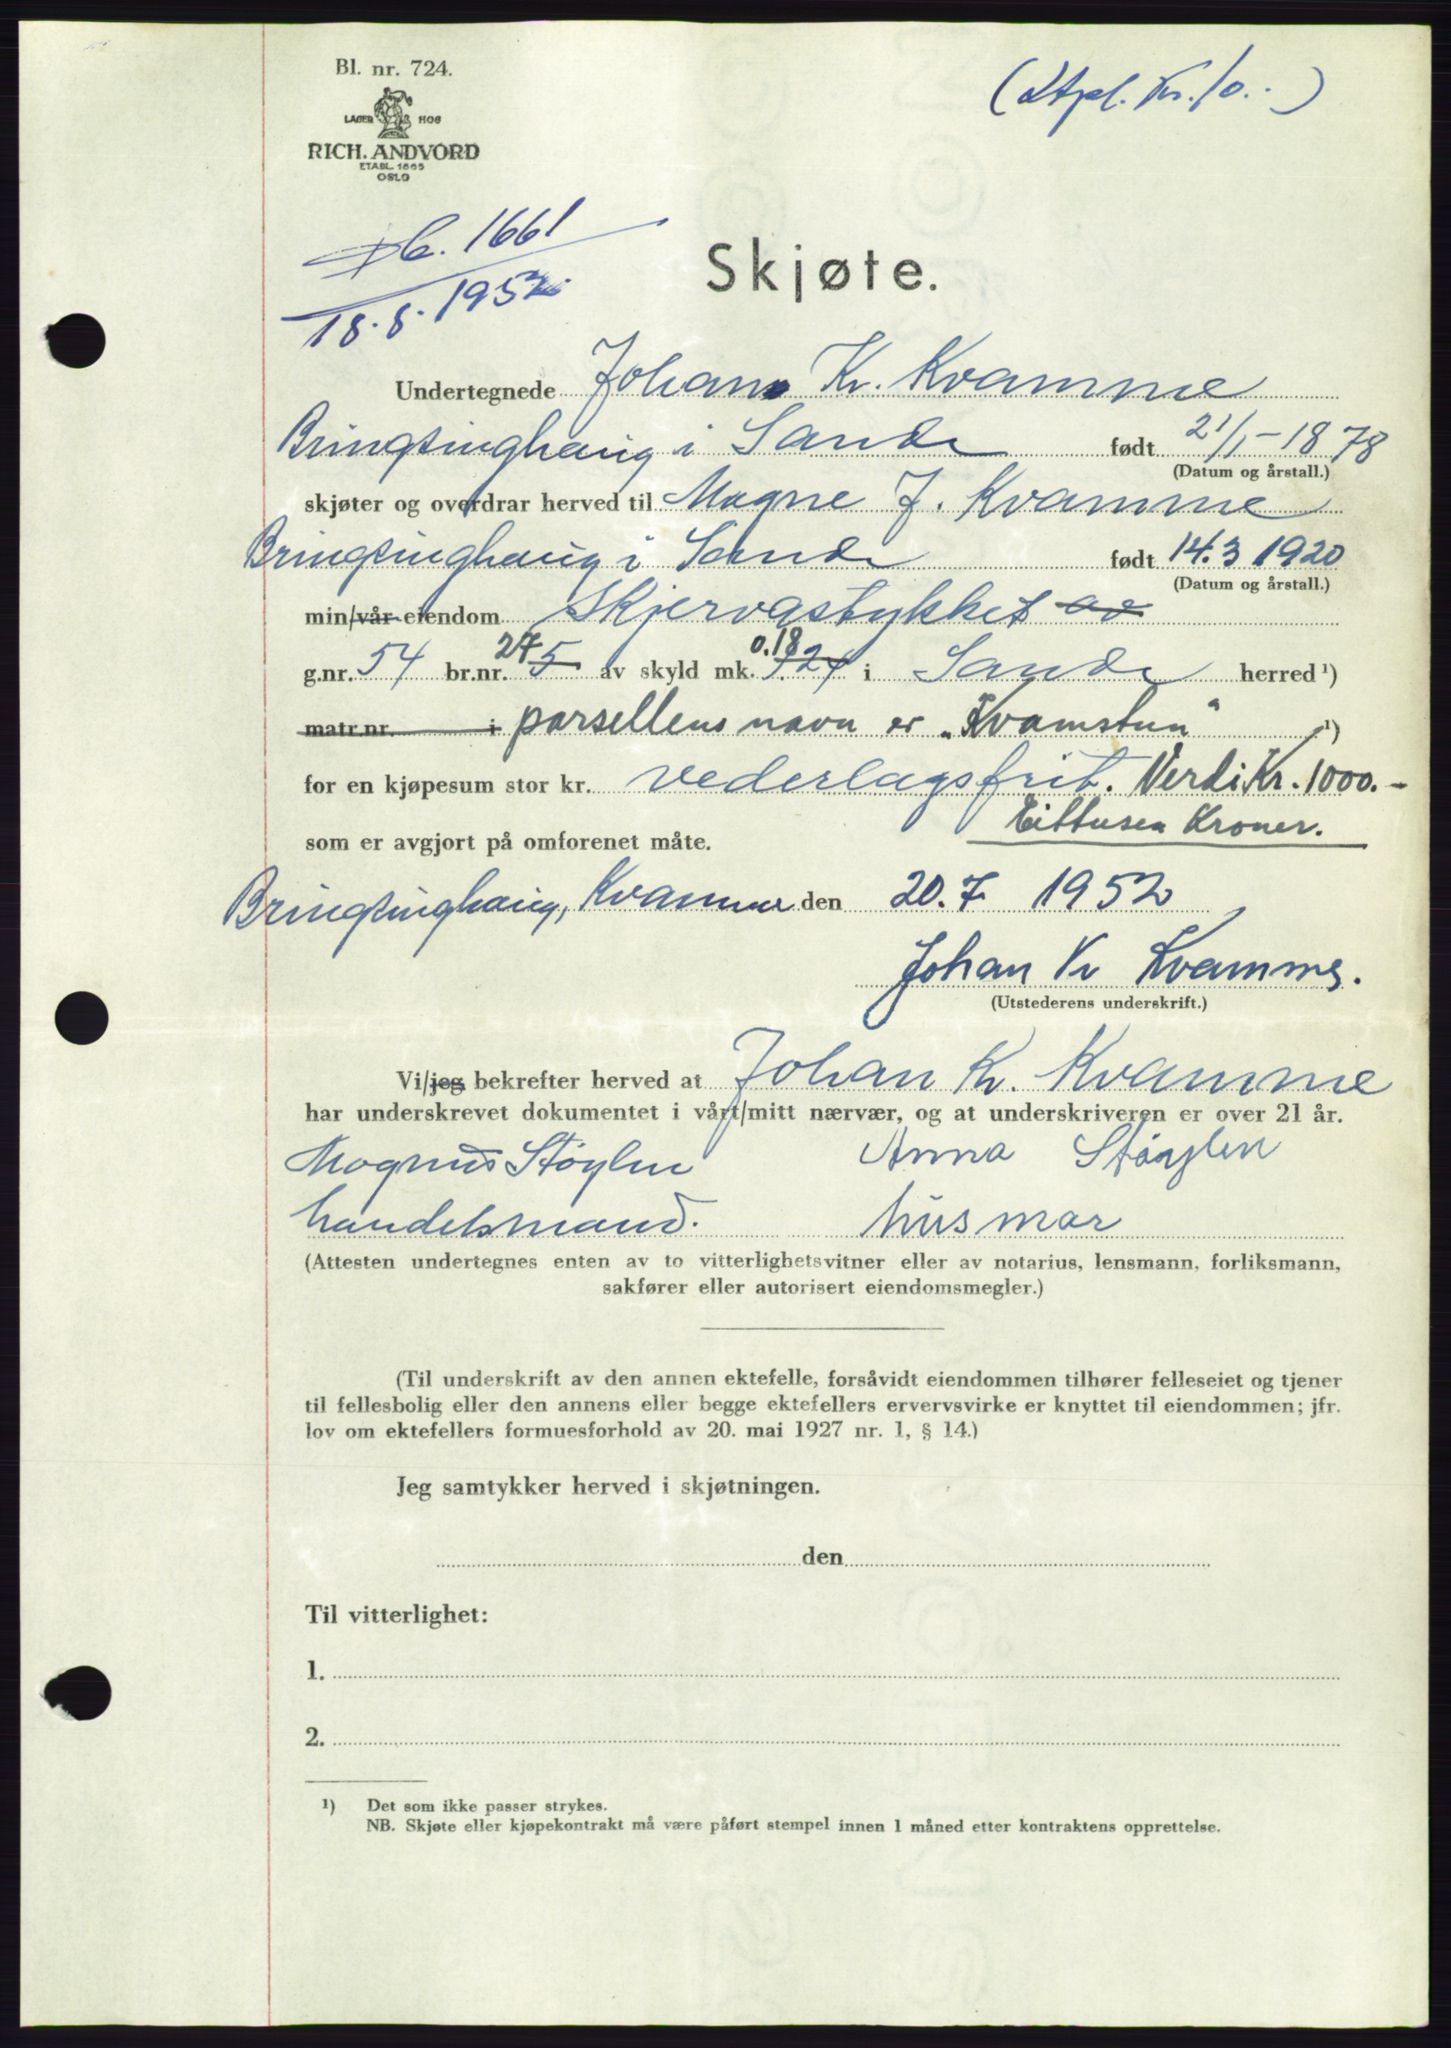 Bl. nr. 724.
(Stpl. kr. 10.-)
LAGER HOS
RICH. ANDVORD
ETABL. 1865
OSLO
Db. 1661
18.8. 1952.
Skjøte.
Undertegnede Johan Kr. Kvamme
Bringsinghaug i Sande født 21/1-1878
(Datum og årstall.)
skjøter og overdrar herved til Magne J. Kvamme
Bringsinghaug i Sande født 14.3 1920
(Datum og årstall.)
min/vår eiendom Skjervastykket av
g.nr. 54 br.nr. 5 27 av skyld mk. 0.18 i Sande herred ¹)
matr.nr. i parsellens navn er "Kvamstun" ¹)
for en kjøpesum stor kr. vederlagsfrit. Verdi Kr. 1000.-
Eittusen Kroner.
som er avgjort på omforenet måte.
Bringsinghaug, Kvamme den 20.7 1952
Johan Kr Kvamme.
(Utstederens underskrift.)
Vi/jeg bekrefter herved at Johan Kr. Kvamme
har underskrevet dokumentet i vårt/mitt nærvær, og at underskriveren er over 21 år.
Magnus Støylen Anna Støylen
handelsmand. husmor
(Attesten undertegnes enten av to vitterlighetsvitner eller av notarius, lensmann, forliksmann,
sakfører eller autorisert eiendomsmegler.)
(Til underskrift av den annen ektefelle, forsåvidt eiendommen tilhører felleseiet og tjener
til fellesbolig eller den annens eller begge ektefellers ervervsvirke er knyttet til eiendommen; jfr.
lov om ektefellers formuesforhold av 20. mai 1927 nr. 1, § 14.)
Jeg samtykker herved i skjøtningen.
den
Til vitterlighet:
1.
2.
¹) Det som ikke passer strykes.
NB. Skjøte eller kjøpekontrakt må være påført stempel innen 1 måned etter kontraktens opprettelse.